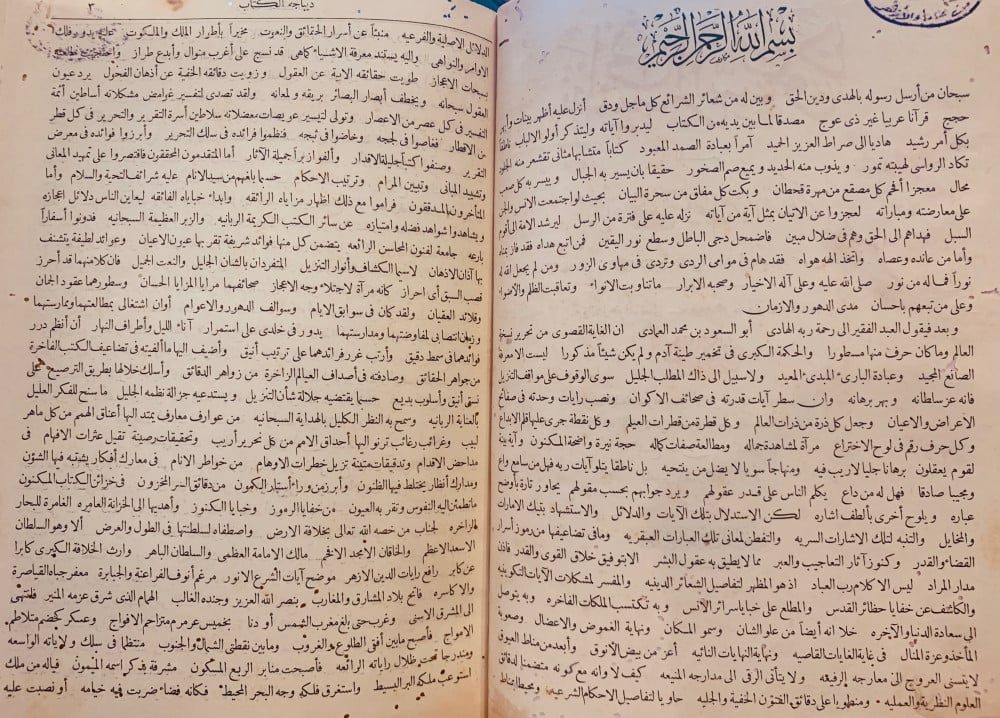 بسم الله الرحمن الرحيم
سبحان من أرسل رسوله بالهدى ودين الحق وبين له من شعائر الشرائع كل ماجل ودق أنزل عليه أظهر بينات وأبهر
حجج قرآنا عربيا غير ذى عوج مصدقا لما بين يديه من الكتاب ليدبروا آياته وليتذكر أولو الالباب ناطقا
بكل أمر رشيد هاديا الى صراط العزيز الحميد آمرا بعبادة الصمد المعبود كتابا متشابها مثانى تقشعر منه الجلود
تكاد الرواسى لهيبته تمور ويذوب منه الحديد ويميع صم الصخور حقيقا بأن يسير به الجبال وييسر به كل صعب
محال معجزا أفحم كل مصقع من مهرة قحطان وبكت كل مفلق من سحرة البيان بحيث لو اجتمعت الانس والجن
على معارضته ومباراته لعجزوا عن الاتيان بمثل آية من آياته نزله عليه على فترة من الرسل ليرشد الامة الى أقوم
السبل فهداهم الى الحق وهم فى ضلال مبين فاضمحل دجى الباطل وسطع نور اليقين فمن اتبع هداه فقد فاز بمناه
وأما من عانده وعصاه واتخذ الهه هواه فقد هام فى موامى الردى وتردى فى مهاوى الزور ومن لم يجعل الله له
نورا فما له من نور صلى الله عليه وعلى آله الاخيار وصحبه الابرار ماتناوبت الانواء وتعاقبت الظلم والاضواء
وعلى من تبعهم باحسان مدى الدهور والازمان
وبعد فيقول العبد الفقير الى رحمة ربه الهادى أبو السعود بن محمد العمادى ان الغاية القصوى من تحرير نسخة
العالم وما كان حرف منها مسطورا والحكمة الكبرى فى تخمير طينة آدم ولم يكن شيئا مذكورا ليست الا معرفة
الصانع المجيد وعبادة البارئ المبدئ المعيد ولا سبيل الى ذاك المطلب الجليل سوى الوقوف على مواقف التنزيل
فانه عز سلطانه وبهر برهانه وان سطر آيات قدرته فى صحائف الاكوان ونصب رايات وحدته فى صفائح
الأعراض والاعيان وجعل كل ذرة من ذرات العالم وكل قطرة من قطرات العيلم وكل نقطة جرى عليها قلم الابداع
وكل حرف رقم فى لوح الاختراع مرآة لمشاهدة جماله ومطالعة صفات كماله حجة نيرة واضحة المكنون وآية بينة
لقوم يعقلون برهانا جليا لاريب فيه ومنهاجا سويا لا يضل من ينتحيه بل ناطقا يتلو آيات ربه فهل من سامع واع
ومجيبا صادقا فهل له من داع يكلم الناس على قدر عقولهم ويرد جوابهم بحسب مقولهم يحاور تارة بأوضح
عباره ويلوح أخرى بألطف اشاره لكن الاستدلال بتلك الآيات والدلائل والاستشهاد بتيك الامارات
والمخايل والتنبه لتلك الاشارات السريه والتفطن لمعانى تلك العبارات العبقريه وما فى تضاعيفها من رموز أسرار
القضاء والقدر وكنوز آثار التعاجيب والعبر مما لا يطيق به عقول البشر الا بتوفيق خلاق القوى والقدر فاذن
مدار المراد ليس الا كلام رب العباد اذ هو المظهر لتفاصيل الشعائر الدينيه والمفسر لمشكلات الآيات التكوينيه
والكاشف عن خفايا حظائر القدس والمطلع على خبايا سرائر الانس وبه تكتسب الملكات الفاخره وبه يتوصل
الى سعادة الدنيا والآخره خلا انه أيضا من علو الشان وسمو المكان ونهاية الغموض والاعضال وصعوبة
المأخذ وعزة المنال فى غاية الغايات القاصيه ونهاية النهايات النائيه أعز من بيض الأنوق وأبعد من مناط العيوق
لا يتسنى العروج الى معارجه الرفيعه ولا يتأتى الرقى الى مدارجه المنيعه كيف لا وانه مع كونه متضمنا لدقائق
العلوم النظرية والعمليه ومنطويا على دقائق الفنون الخفية والجليه حاويا لتفاصيل الاحكام الشرعيه ومحيطا بمناط
ديباجة الكتاب ٣
الدلائل الاصلية والفرعيه منبئا عن أسرار الحقائق والنعوت مخبرا بأطوار الملك والملكوت عليه يدور فلك
الاوامر والنواهى واليه يستند معرفة الاشياء كما هى قد نسج على أغرب منوال وأبدع طراز واحتجبت طلعته
بسبحات الاعجاز طويت حقائقه الابية عن العقول وزويت دقائقه الخفية عن أذهان الفحول يرد عيون
العقول سبحانه ويخطف أبصار البصائر بريقه ولمعانه ولقد تصدى لتفسير غوامض مشكلاته أساطين أئمة
التفسير فى كل عصر من الاعصار وتولى لتيسير عويصات معضلاته سلاطين أسرة التقرير والتحرير فى كل قطر
من الاقطار فغاصوا فى لججه وخاضوا فى ثبجه فنظموا فرائده فى سلك التحرير وأبرزوا فوائده فى معرض
التقرير وصنفوا كتبا جليلة الاقدار وألفوا زبرا جميلة الآثار أما المتقدمون المحققون فاقتصروا على تمهيد المعانى
وتشييد المبانى وتبيين المرام وترتيب الاحكام حسبما بلغهم من سيد الانام عليه شرائف التحية والسلام وأما
المتأخرون المدققون فراموا مع ذلك اظهار مزاياه الرائقه وابداء خباياه الفائقه ليعاين الناس دلائل اعجازه
ويشاهدوا شواهد فضله وامتيازه عن سائر الكتب الكريمة الربانيه والزبر العظيمة السبحانيه فدونوا أسفارا
بارعه جامعة لفنون المحاسن الرائعه يتضمن كل منها فوائد شريفة تقر بها عيون الاعيان وعوائد لطيفة يتشنف
بها آذان الاذهان لاسيما الكشاف وأنوار التنزيل المتفردان بالشان الجليل والنعت الجميل فان كلا منهما قد أحرز
قصب السبق أى احراز كأنه مرآة لاجتلاء وجه الاعجاز صحائفهما مرايا المزايا الحسان وسطورهما عقود الجمان
وقلائد العقيان ولقد كان فى سوابق الايام وسوالف الدهور والاعوام أوان اشتغالى بمطالعتهما وممارستهما
وزمان انتصابى لمفاوضتهما ومدارستهما يدور فى خلدى على استمرار آناء الليل وأطراف النهار أن أنظم درر
فوائدهما فى سمط دقيق وأرتب غرر فرائدهما على ترتيب أنيق وأضيف اليها ما ألفيته فى تضاعيف الكتب الفاخرة
من جواهر الحقائق وصادفته فى أصداف العيالم الزاخرة من زواهر الدقائق وأسلك خلالها بطريق الترصيع على
نسق أنيق وأسلوب بديع حسبما يقتضيه جلالة شأن التنزيل ويستدعيه جزالة نظمه الجليل ما سنح للفكر العليل
بالعناية الربانيه وسمح به النظر الكليل بالهداية السبحانيه من عوارف معارف يمتد اليها أعناق الهمم من كل ماهر
لبيب وغرائب رغائب ترنو اليها أحداق الامم من كل نحرير أريب وتحقيقات رصينة تقيل عثرات الافهام فى
مداحض الاقدام وتدقيقات متينة تزيل خطرات الاوهام من خواطر الانام فى معارك أفكار يشتبه فيها الشؤن
ومدارك أنظار يختلط فيها الظنون وأبرز من وراء أستار الكمون من دقائق السر المخزون فى خزائن الكتاب المكنون
ما تطمئن اليه النفوس وتقر به العيون من خفايا الرموز وخبايا الكنوز وأهديها الى الخزانة العامره الغامرة للبحار
الزاخره لجناب من خصه الله تعالى بخلافة الارض واصطفاه لسلطنتها فى الطول والعرض ألا وهو السلطان
الاسعد الاعظم والخاقان الامجد الافخم مالك الامامة العظمى والسلطان الباهر وارث الخلافة الكبرى كابرا
عن كابر رافع رايات الدين الازهر موضح آيات الشرع الانور مرغم أنوف الفراعنة والجبابرة معفر جباه القياصرة
والاكاسره فاتح بلاد المشارق والمغارب بنصر الله العزيز وجنده الغالب الهمام الذى شرق عزمه المنير فانتهى
الى المشرق الاسنى وغرب حتى بلغ مغرب الشمس أو دنا بخميس عرمرم متزاحم الافواج وعسكر كخضم متلاطم
الامواج فأصبح ما بين أفقى الطلوع والغروب وما بين نقطتى الشمال والجنوب منتظما فى سلك ولاياته الواسعه
ومندرجا تحت ظلال راياته الرائعه فأصبحت منابر الربع المسكون مشرفة بذكر اسمه الميمون فياله من ملك
استوعب ملكه البر البسيط واستغرق فلكه وجه البحر المحيط فكأنه فضاء ضربت فيه خيامه أو نصبت عليه